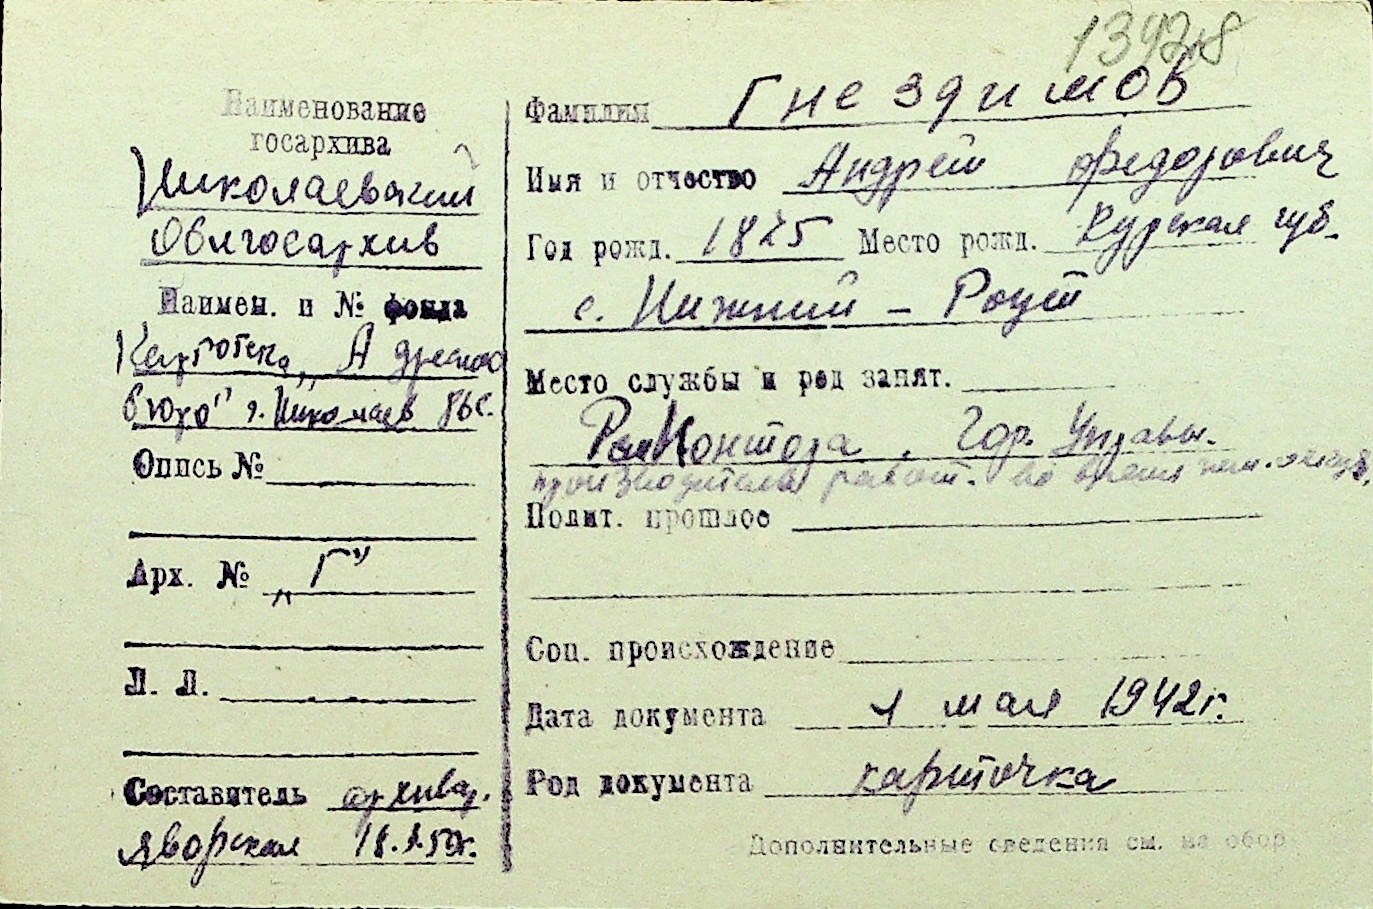 Наименование
госархива
Николаевский
Облгосархив
Наимен. и № фонда
Картотека „Адресное
бюро" г. Николаев
Опись №
Арх. № „Г"
Л. Л.
Составитель архивар.
Яворская 18. 50г.
Фамилия Гнездимов
Имя и отчество Андрей Федорович
Год рожд. 1875 Место рожд. Курская губ.
с. Нижний - Роут
Место службы и род занят.
Ремконтора. Гор. Управы.
производитель работ. во время нем. оккуп.
Полит. прошлое
Соц. происхождение
Дата документа 1 мая 1942г.
Род документа карточка
Дополнительные сведения см. на обор